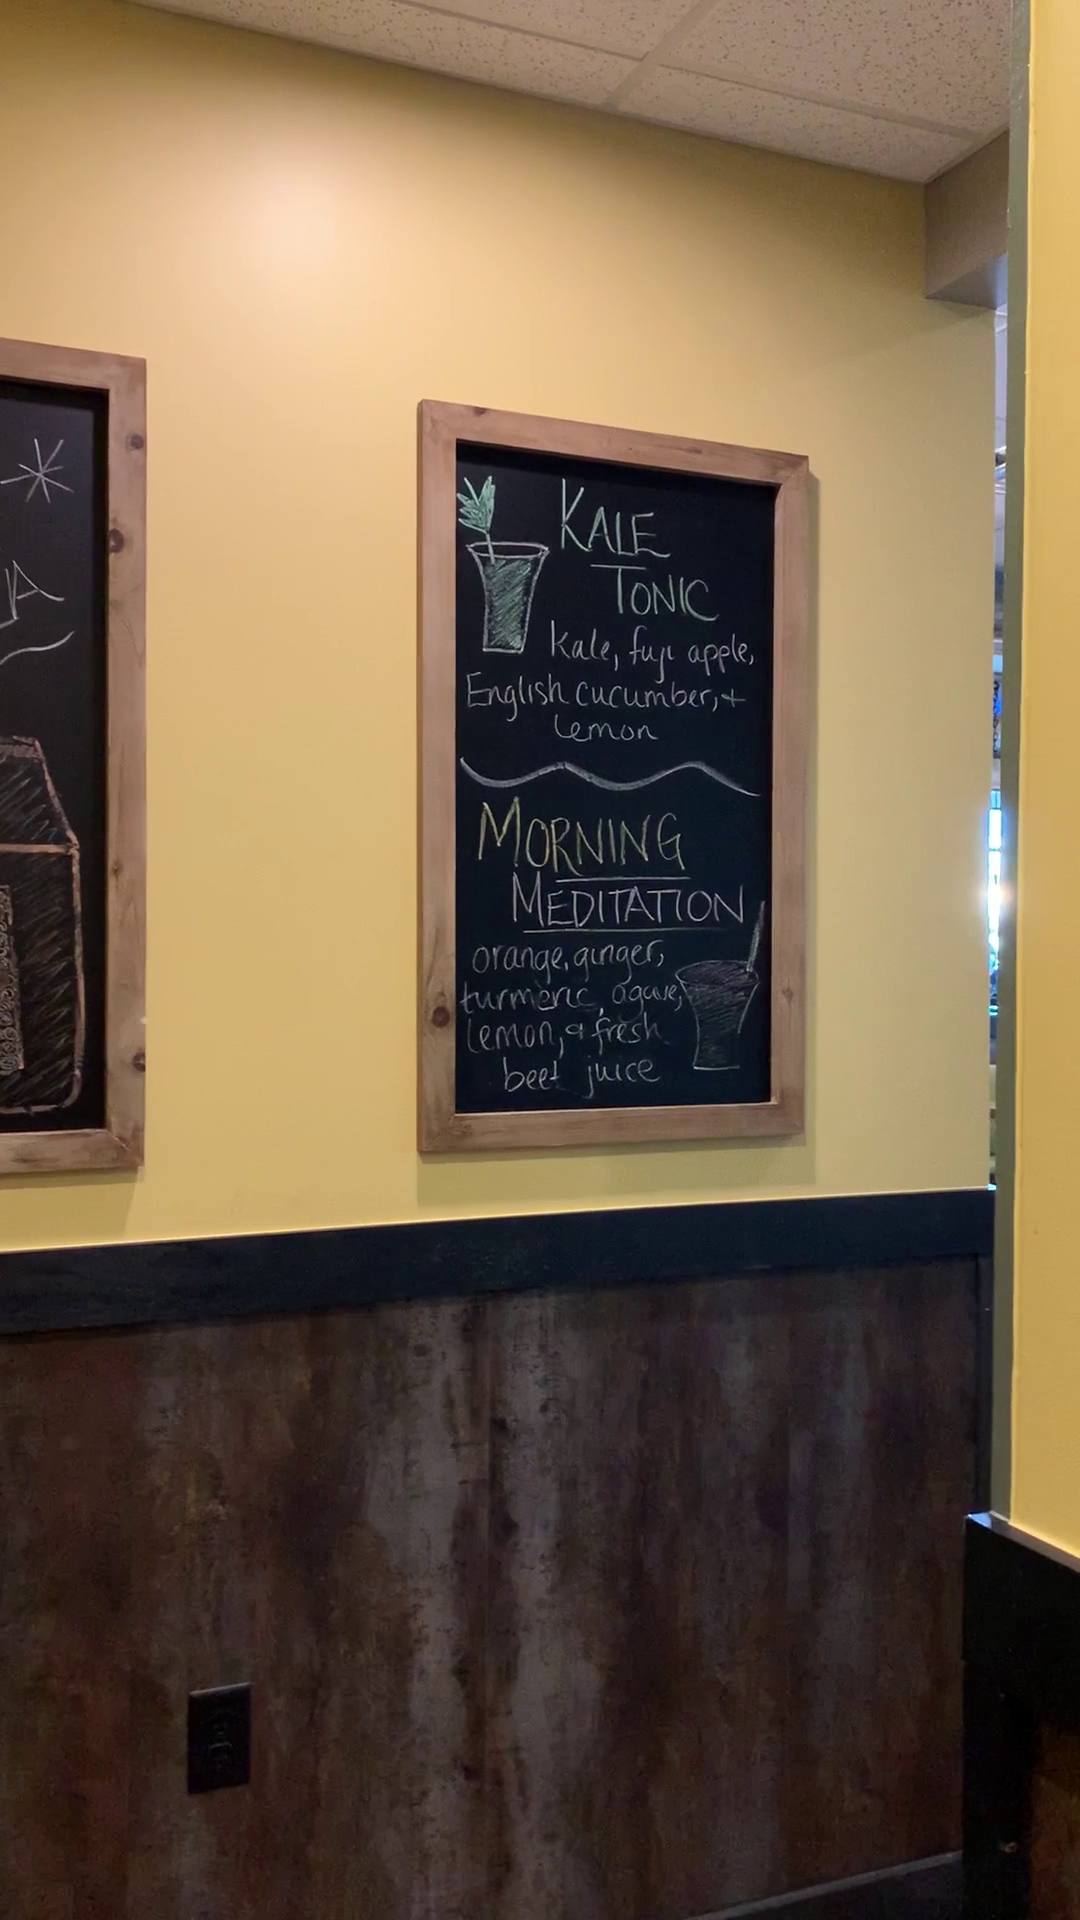 KALE
TONIC
Kale, fuji apple,
English cucumber, +
lemon
MORNING
MEDITATION
orange, ginger,
turmeric, agave,
lemon, & fresh
beet juice